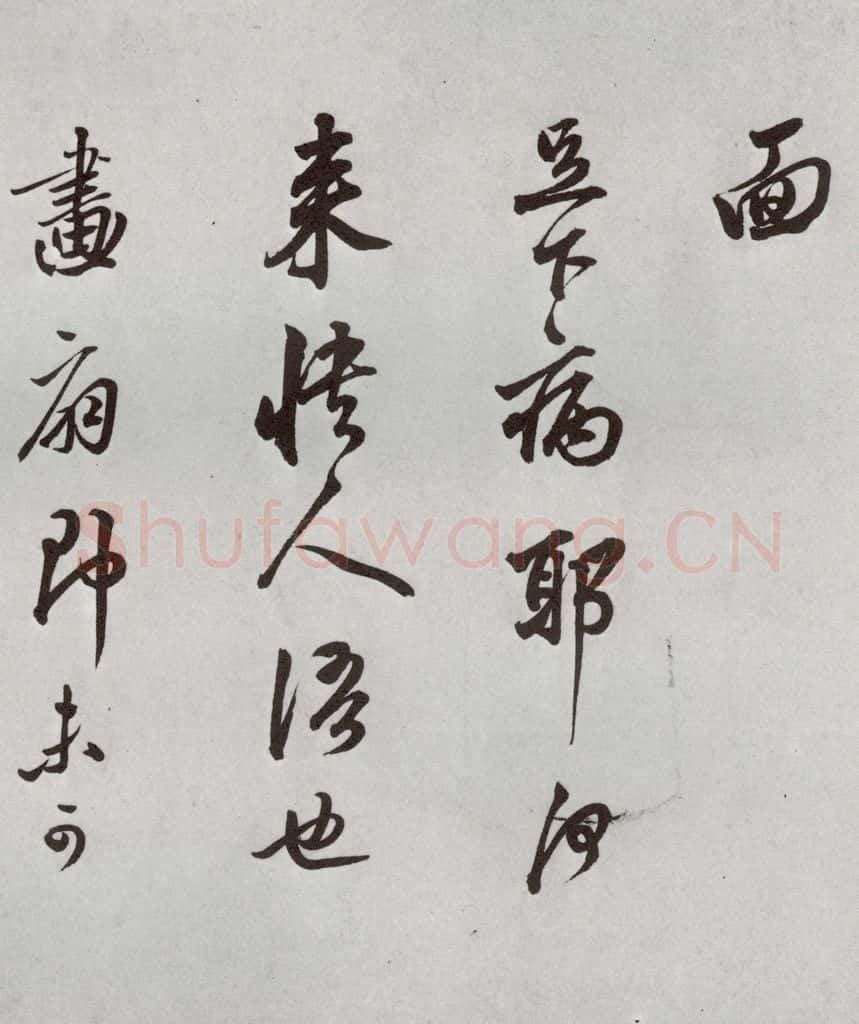 面
足下病耶何
来恠人语也
畫扇即未可
Shufawang.CN